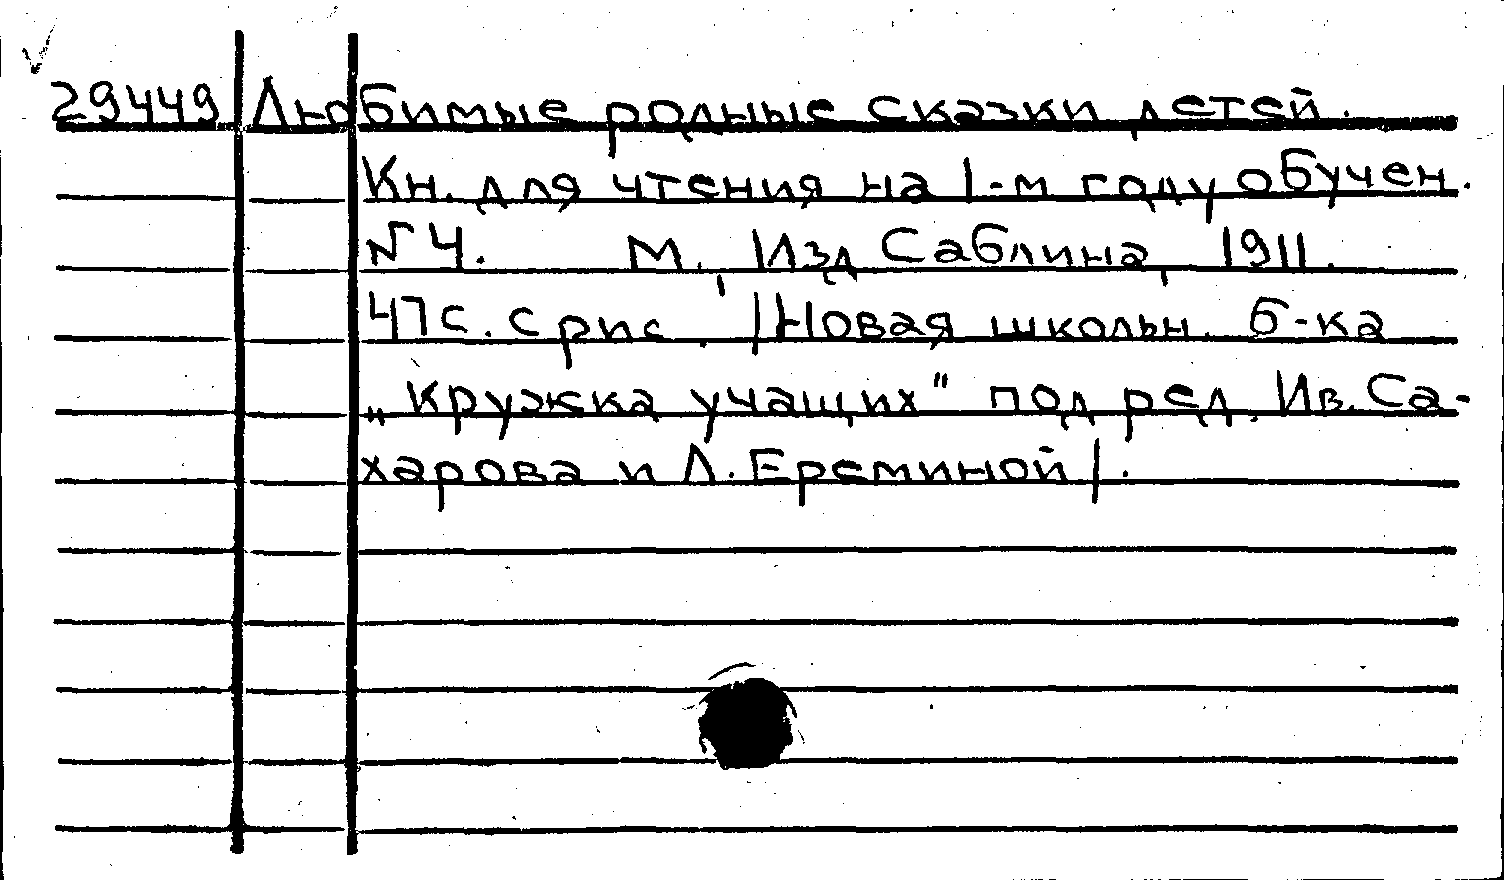 29449 Любимые родные сказки детей.
Кн. для чтения на 1-м году обучен.
N 4. М., Изд Саблина, 1911.
47 с. с рис. /Новая школьн. б-ка
„Кружка учащих" под ред. Ив. Са-
харова и Л. Ереминой/.